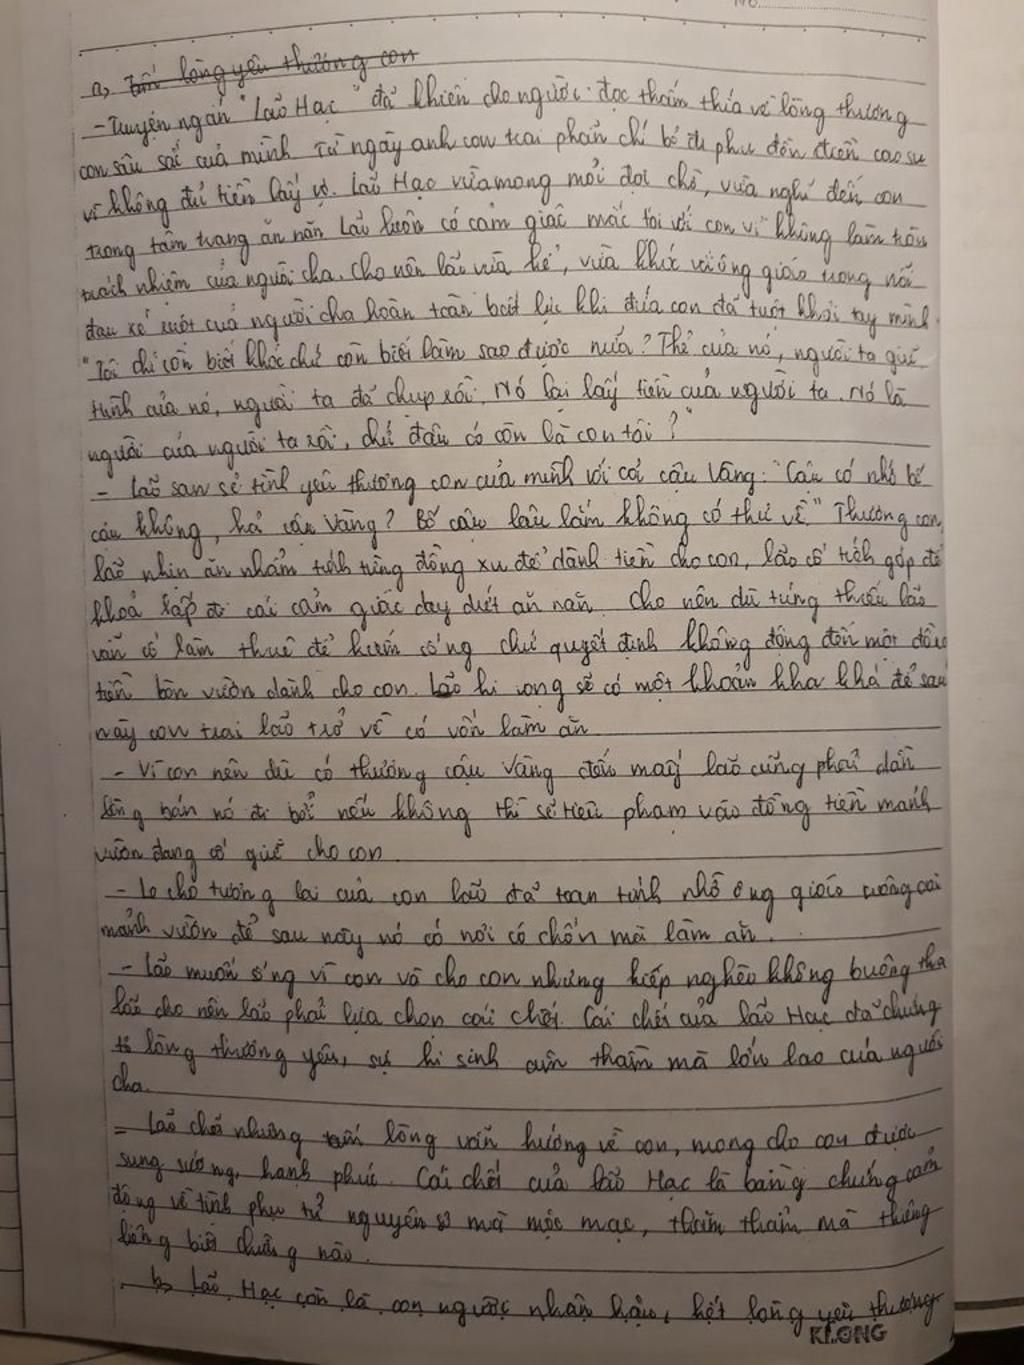 No
a, Tấm lòng yêu thương con
- Truyện ngắn "Lão Hạc" đã khiến cho người đọc thấm thía về lòng thương
con sâu sắc của mình Từ ngày anh con trai phẫn chí bỏ đi phu đồn điền cao su
vì không đủ tiền lấy vợ. Lão Hạc vừa mong mỏi đợi chờ, vừa nghĩ đến con
trong tâm trạng ăn năn Lão luôn có cảm giác mắc tội với con vì không làm tròn
trách nhiệm của người cha. Cho nên lão vừa kể, vừa khóc với ông giáo trong nỗi
đau xé ruột của người cha hoàn toàn bất lực khi đứa con đã tuột khỏi tay mình.
"Tôi chỉ còn biết khóc chứ còn biết làm sao được nữa? Thẻ của nó, người ta giữ.
Hình của nó, người ta đã chụp rồi. Nó lại lấy tiền của người ta. Nó là
người của người ta rồi, chứ đâu có còn là con tôi?"
- Lão san sẻ tình yêu thương con của mình với cả cậu Vàng: "Cậu có nhớ bố
cậu không, hả cậu Vàng? Bố cậu lâu lắm không có thư về" Thương con,
lão nhịn ăn nhằm tích từng đồng xu để dành tiền cho con, lão cố tích góp để
khoả lấp đi cái cảm giác day dứt ăn năn Cho nên dù túng thiếu lão
vẫn cố làm thuê để kiếm sống chứ quyết định không động đến một đồng
tiền bòn vườn dành cho con. Lão hi vọng sẽ có một khoản kha khá để sau
này con trai lão trở về có vốn làm ăn
- Vì con nên dù có thương cậu Vàng đến mấy lão cũng phải dằn
lòng bán nó đi bởi nếu không thì sẽ tiêu phạm vào đồng tiền mảnh
vườn đang cố giữ cho con
- Lo cho tương lai của con lão đã toan tính nhờ ông giáo trông coi
mảnh vườn để sau này nó có nơi có chốn mà làm ăn.
- Lão muốn sống vì con và cho con nhưng kiếp nghèo không buông tha
lão cho nên lão phải lựa chọn cái chết. Cái chết của lão Hạc đã chứng
tỏ lòng thương yêu, sự hi sinh âm thầm mà lớn lao của người
cha.
- Lão chết nhưng tấm lòng vẫn hướng về con, mong cho con được
sung sướng, hạnh phúc. Cái chết của lão Hạc là bằng chứng cảm
động về tình phụ tử nguyên sơ mà mộc mạc, thâm thẳm mà thiêng
liêng biết chừng nào.
b, Lão Hạc còn là con người nhân hậu, hết lòng yêu thương
KLONG